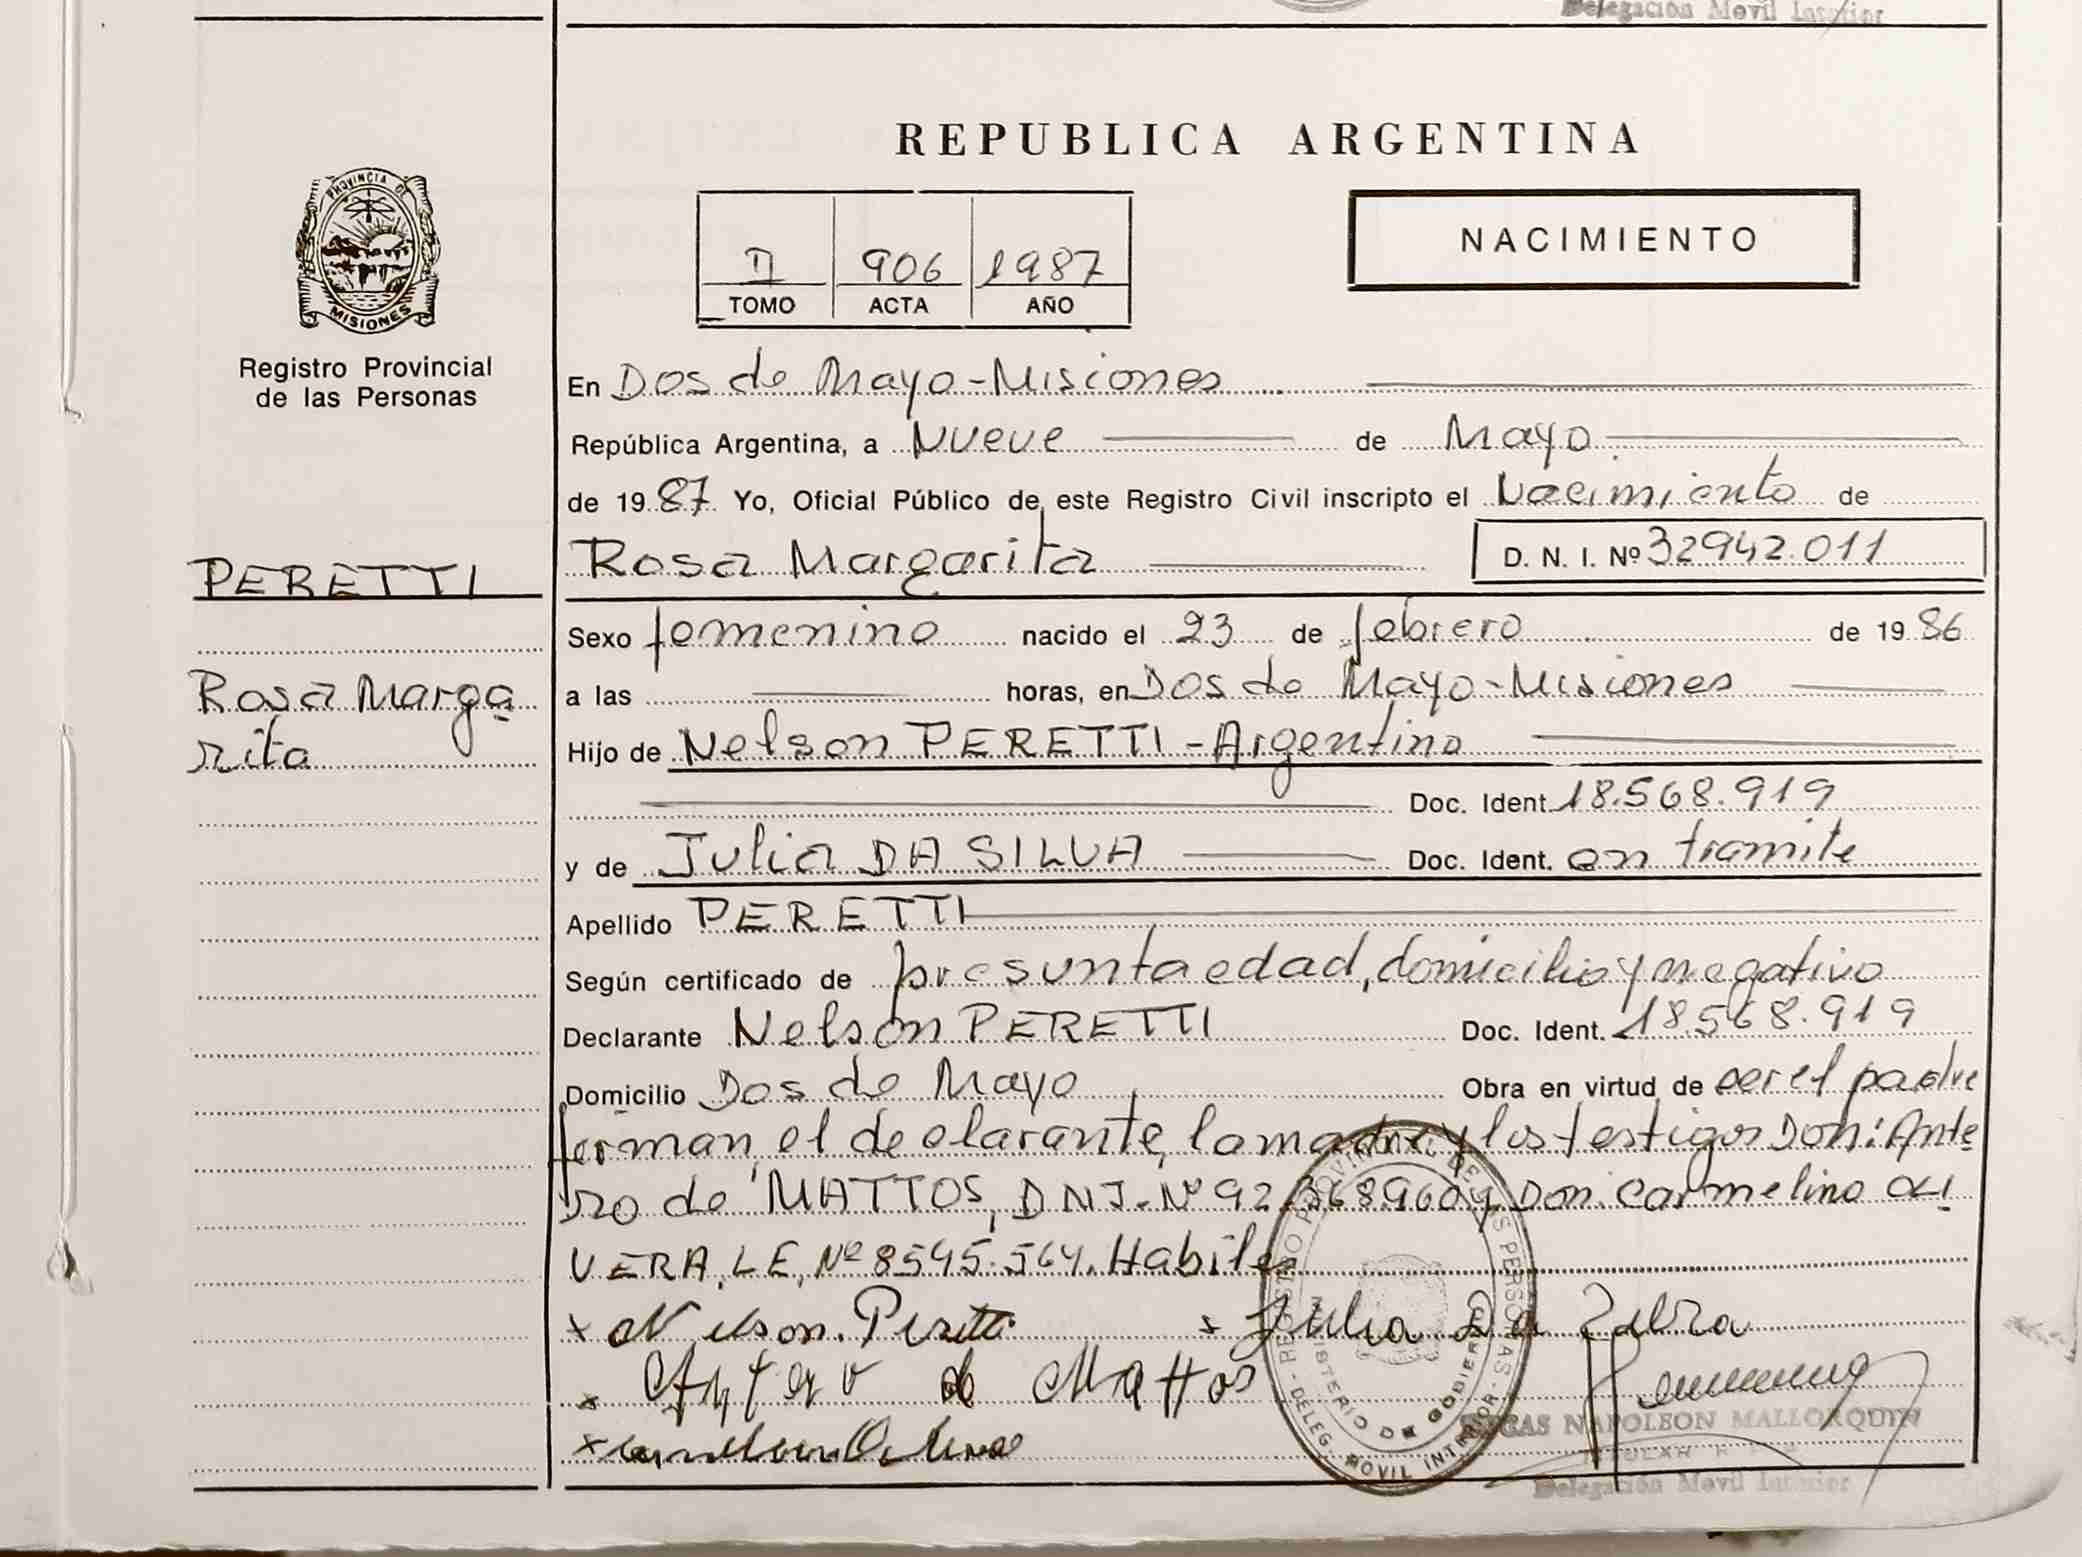 Delegación Movil Interior
REPUBLICA ARGENTINA
PROVINCIA DE
MISIONES
II 906 1987
TOMO ACTA AÑO
NACIMIENTO
Registro Provincial
de las Personas
En Dos de Mayo-Misiones
República Argentina, a Nueve de Mayo
de 1987 Yo, Oficial Público de este Registro Civil inscripto el Nacimiento de
Rosa Margarita D. N. I. Nº 32942.011
PERETTI
Rosa Marga
rita
Sexo femenino nacido el 23 de febrero de 1986
a las horas, en Dos de Mayo-Misiones
Hijo de Nelson PERETTI-Argentino
Doc. Ident. 18.568.919
y de Julia DA SILVA Doc. Ident. en tramite
Apellido PERETTI
Según certificado de presunta edad, domicilio y negativo
Declarante Nelson PERETTI Doc. Ident. 18.568.919
Domicilio Dos de Mayo Obra en virtud de ser el padre
firman, el declarante, la madre y los testigos Don: Ante
ro de MATTOS, DNI-Nº 92.368.960 y Don. Carmelino OLI
VERA, LE, Nº 8545.564. Habiles
x Nelson. Peretti x Julia Da Silva
x Antero de Mattos
x
REGISTRO PROVINCIAL DE LAS PERSONAS
MINISTERIO DE GOBIERNO
DELEG. MOVIL INTERIOR
NAPOLEON MALLORQUIN
TITULAR
Delegación Movil Interior